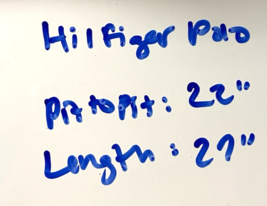 Hilfiger Polo
Pit to pit: 22"
Length: 29"